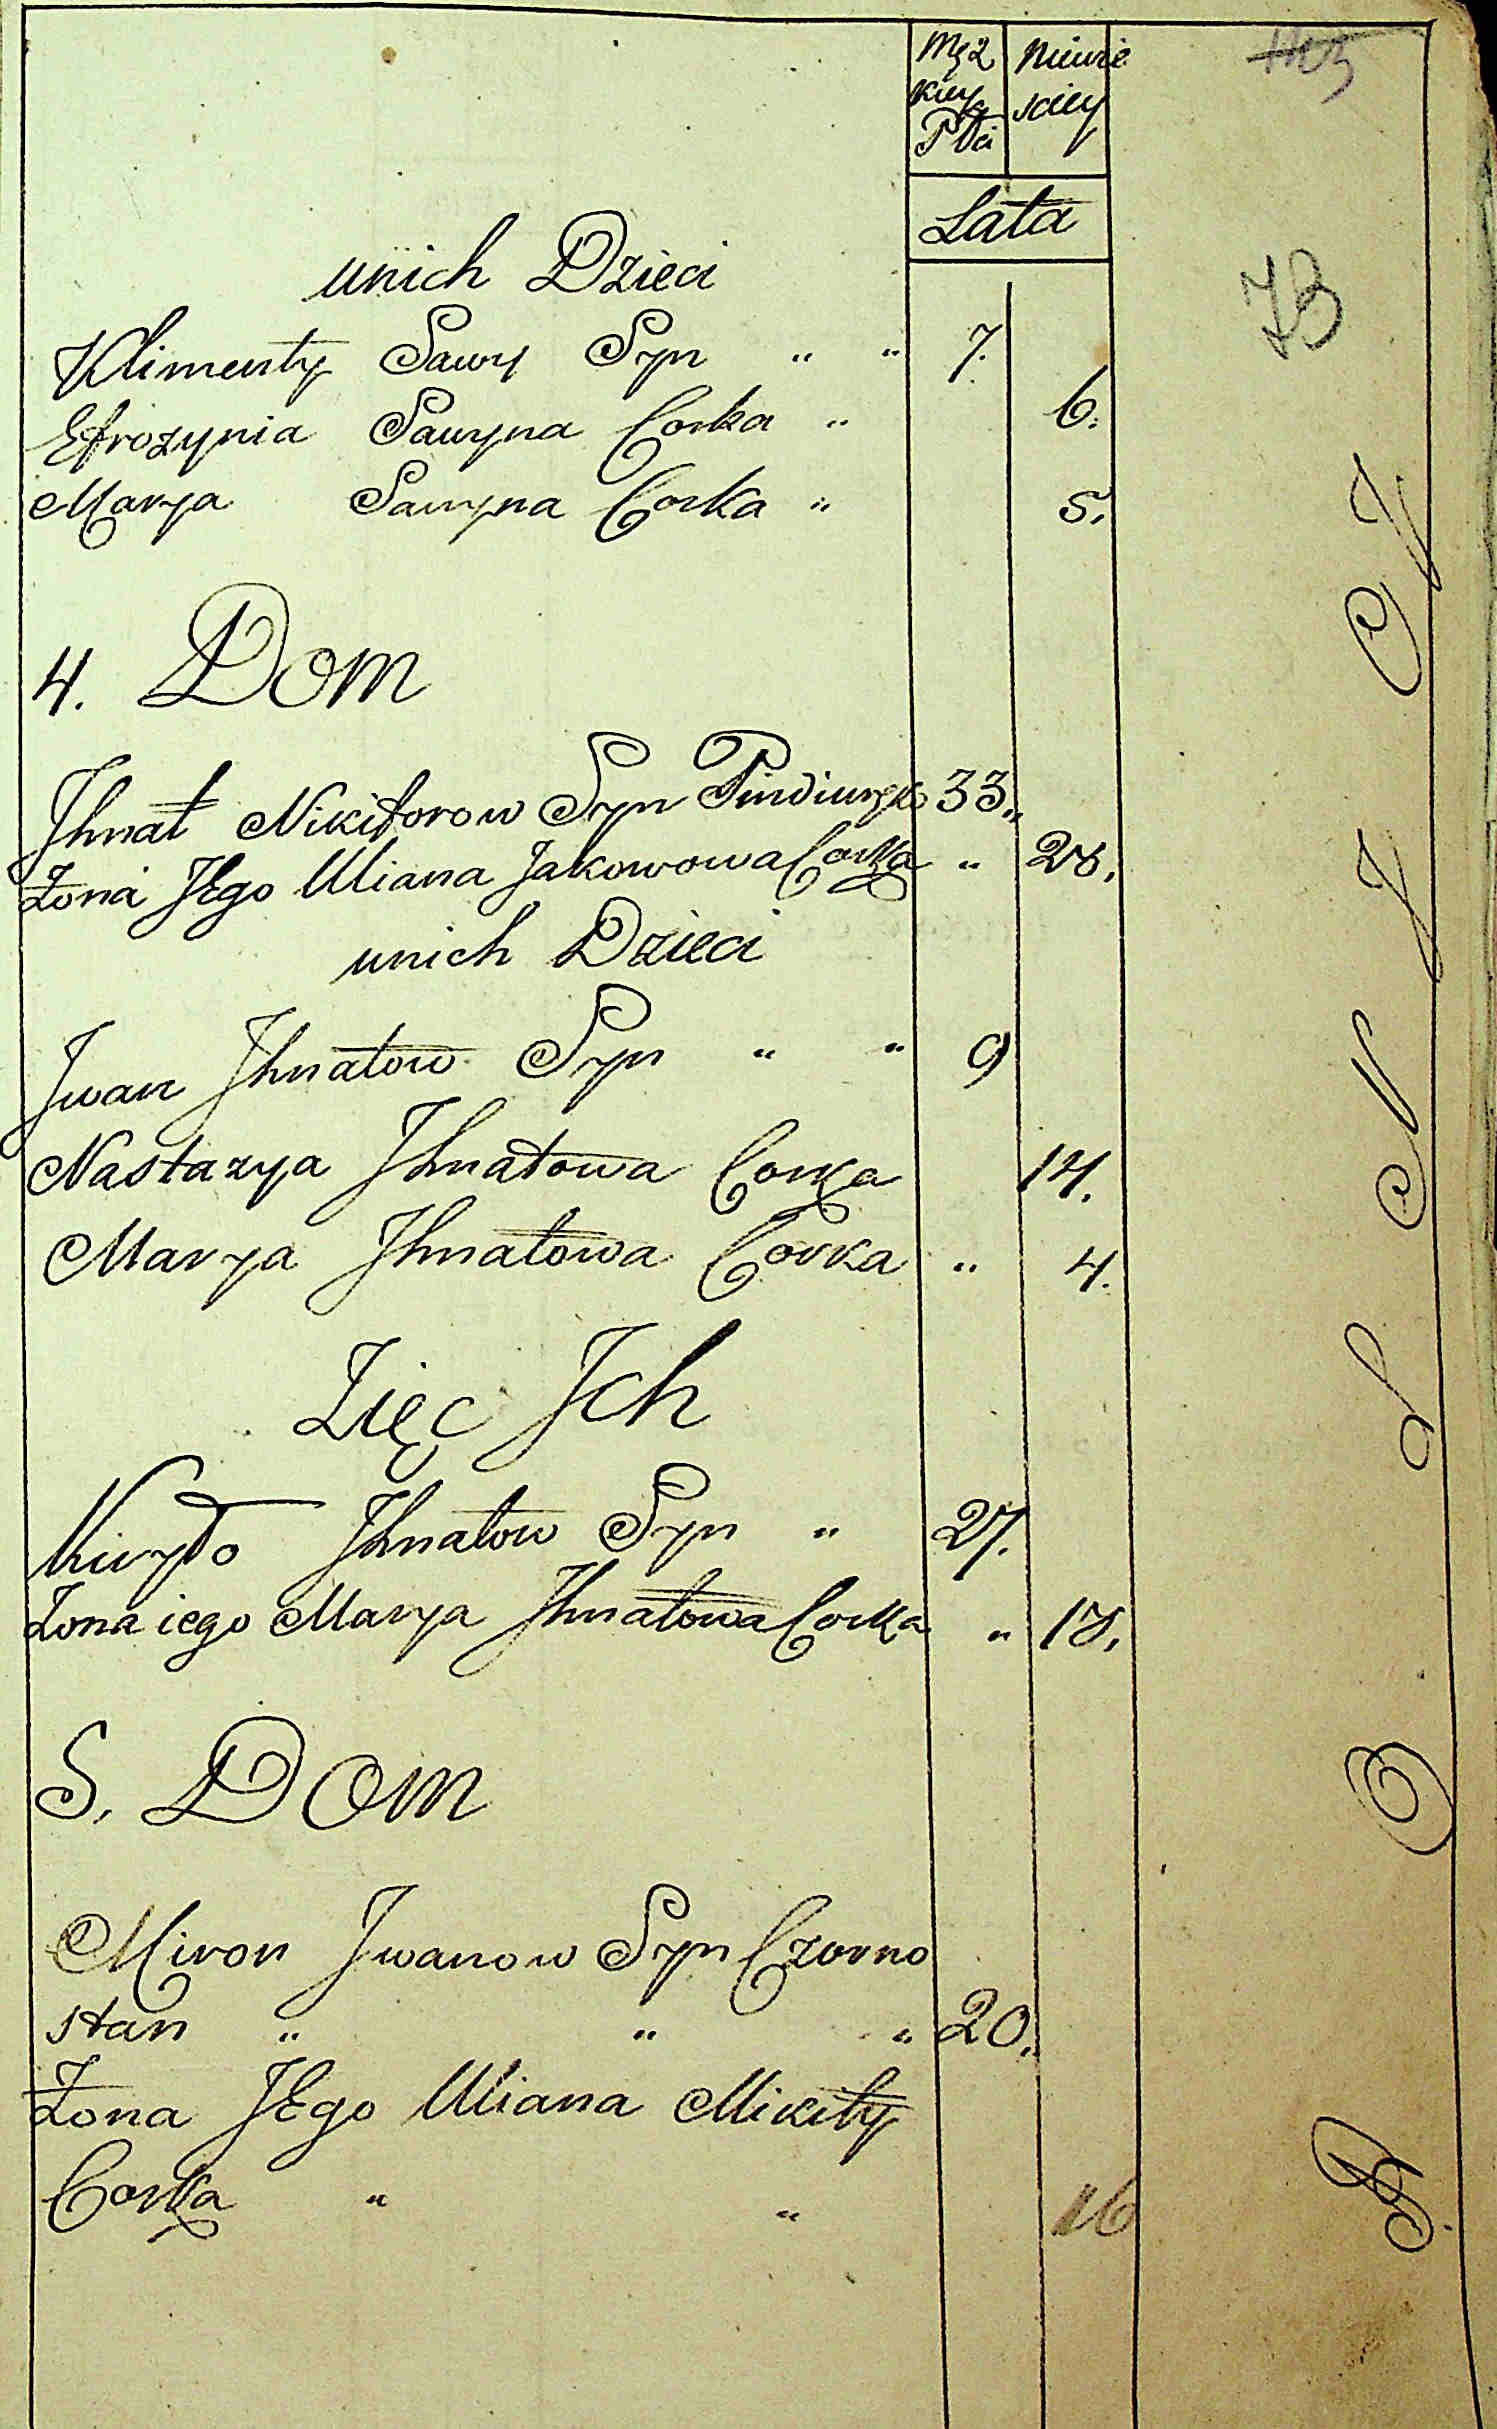 Męz Niewie
kiey sciey
Płci
Lata
73
unich Dzieci
Klimenty Sawy Syn " " 7.
Efrozynia Sawyna Corka " 6.
Marya Sawyna Corka " 5.
4. Dom
Jhnat Nikiforow Syn 33.
Żona JEgo Uliana Jakowowa Corka " 28.
unich Dzieci
Jwan Jhnatow Syn " " 9
Nastazya Jhnatowa Corka 14.
Marya Jhnatowa Corka " 4.
Zięc Jch
Kiryło Jhnatow Syn " 27.
Żona iego Marya Jhnatowa Corka " 18.
5. Dom
Miron Jwanow Syn Czorno
stan " " " 20.
Żona JEgo Uliana Mikity
Corka " " 16